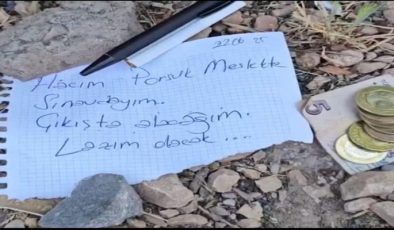 22.06.25
Hacım Porsuk Meslekte
Sınavdayım.
Çıkışta alacağım.
Lazım olacak ....
5